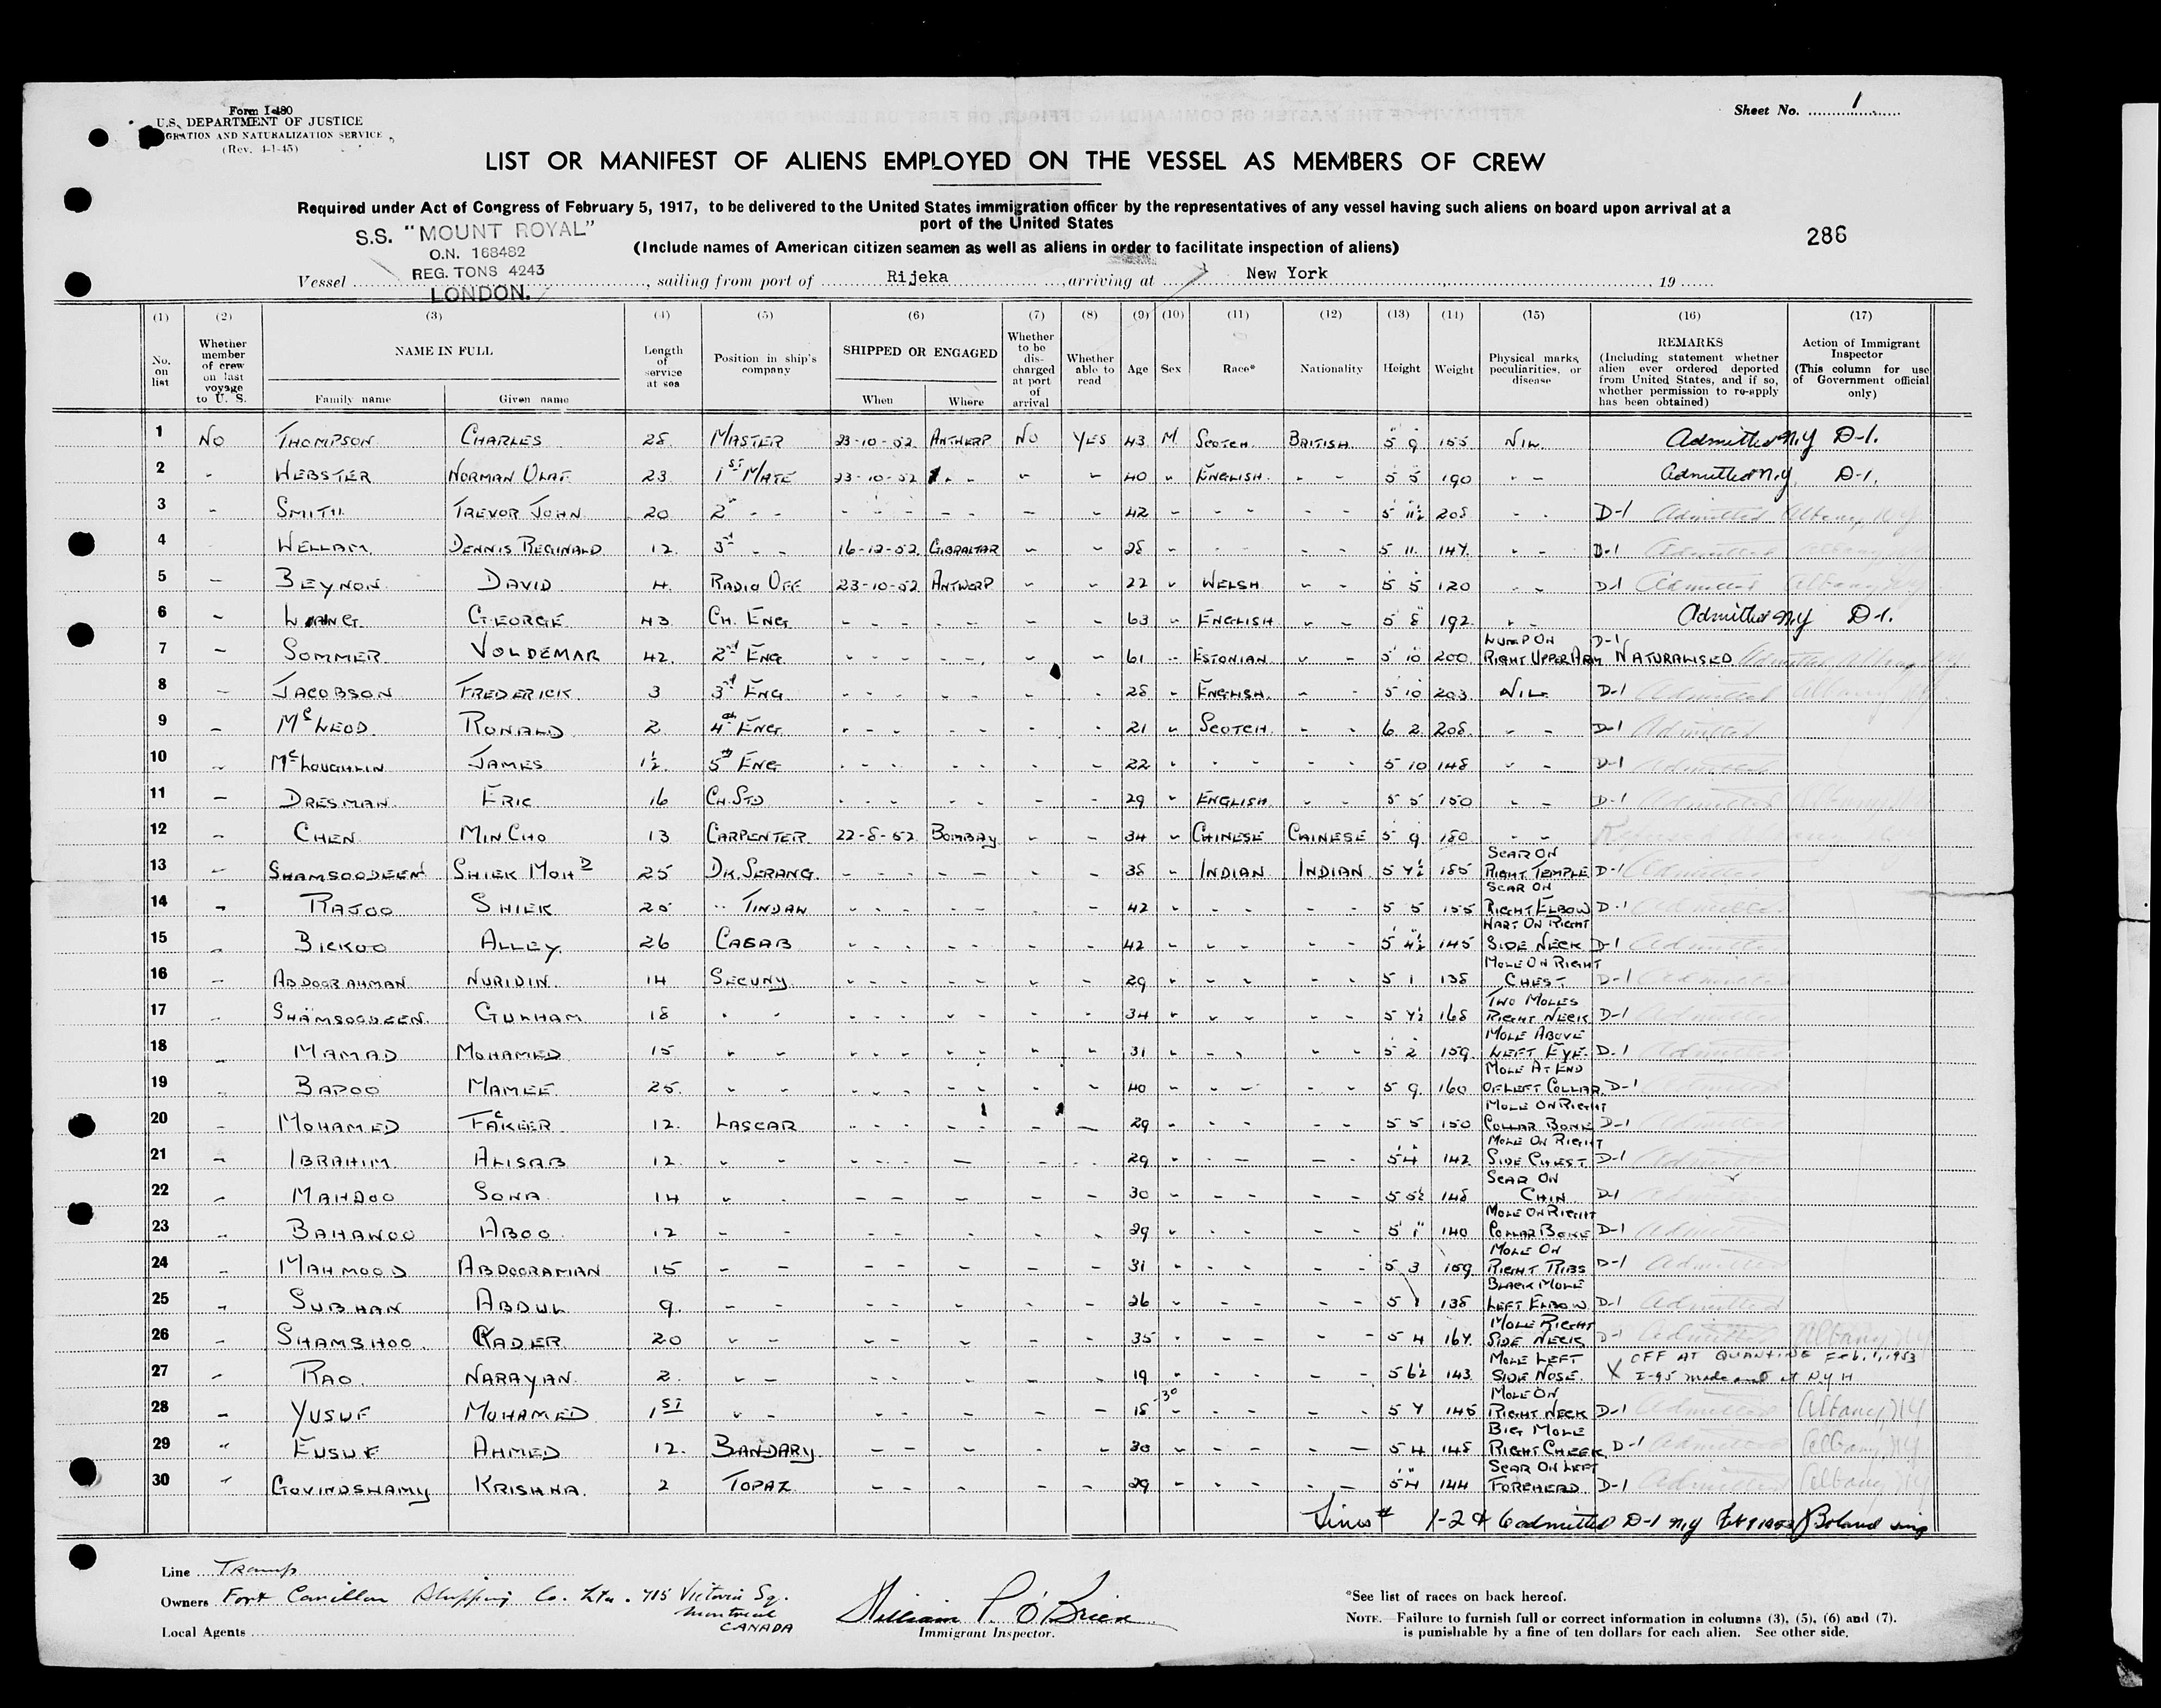 Form I-480
U.S. DEPARTMENT OF JUSTICE
GRATION AND NATURALIZATION SERVICE
(Rev. 4-1-45)
Sheet No. 1
LIST OR MANIFEST OF ALIENS EMPLOYED ON THE VESSEL AS MEMBERS OF CREW
Required under Act of Congress of February 5, 1917, to be delivered to the United States immigration officer by the representatives of any vessel having such aliens on board upon arrival at a
port of the United States
(Include names of American citizen seamen as well as aliens in order to facilitate inspection of aliens)
286
S.S. "MOUNT ROYAL"
O.N. 168482
REG. TONS 4243
LONDON.
Vessel , sailing from port of Rijeka , arriving at New York , 19
(1) (2) (3) (4) (5) (6) (7) (8) (9) (10) (11) (12) (13) (14) (15) (16) (17)
No. on list
Whether member of crew on last voyage to U. S.
NAME IN FULL
Family name Given name
Length of service at sea
Position in ship's company
SHIPPED OR ENGAGED
When Where
Whether to be discharged at port of arrival
Whether able to read
Age Sex Race* Nationality Height Weight
Physical marks, peculiarities, or disease
REMARKS
(Including statement whether alien ever ordered deported from United States, and if so, whether permission to re-apply has been obtained)
Action of Immigrant Inspector
(This column for use of Government official only)
1 No THOMPSON CHARLES 28 MASTER 23-10-52 ANTWERP NO YES 43 M SCOTCH BRITISH 5 9 155 NIL Admitted N.Y D-1.
2 - WEBSTER NORMAN OLAF 23 1ST MATE 23-10-52 - - - - 40 " ENGLISH - - 5 5 190 - - Admitted N.Y. D-1.
3 - SMITH TREVOR JOHN 20 2" - - - - - - - - - 42 " - - - - 5 11½ 208 - - D-1 Admitted Albany N.Y
4 - WELLAM DENNIS REGINALD 12 3rd - - 16-12-52 GIBRALTAR - - 28 " - - - - 5 11 147 - - D-1 Admitted
5 - BEYNON DAVID 4 RADIO OFF 23-10-52 ANTWERP - - 22 " WELSH - - 5 5 120 - - D-1 Admitted Albany N.Y.
6 - GEORGE 43 CH. ENG - - - - - - - 63 " ENGLISH - - 5 8 192 - - Admitted N.Y D-1.
7 - SOMMER VOLDEMAR 42 2nd ENG - - - - - - - 61 - ESTONIAN - - 5 10 200 LUMP ON RIGHT UPPER ARM D-1 NATURALISED Admitted
8 - JACOBSON FREDERICK 3 3rd ENG - - - - - - - 28 " ENGLISH - - 5 10 203 NIL D-1 Admitted Albany
9 - McLEOD RONALD 2 4th ENG - - - - - - - 21 " SCOTCH - - 6 2 208 - - D-1 Admitted
10 - McLOUGHLIN JAMES 1½ 5th ENG - - - - - - - 22 " - - - - 5 10 148 - - D-1 Admitted
11 - DRESMAN ERIC 16 CH. STD - - - - - - - 29 " ENGLISH - - 5 5 150 - - D-1 Admitted
12 - CHEN MIN CHO 13 CARPENTER 22-8-52 BOMBAY - - 34 " CHINESE CHINESE 5 9 180 - -
13 - SHAMSOODEEN SHIEK MOHD 25 DK. SERANG - - - - - - - 38 " INDIAN INDIAN 5 7½ 185 SCAR ON RIGHT TEMPLE D-1 Admitted
14 - RAJOO SHIEK 25 " TINDAL - - - - - - - 42 " - - - - 5 5 155 SCAR ON RIGHT ELBOW D-1 Admitted
15 - BICKOO ALLEY 26 CASAB - - - - - - - 42 " - - - - 5 4½ 145 WART ON RIGHT SIDE NECK D-1 Admitted
16 - ABDOORAHMAN NURIDIN 14 SECUNY - - - - - - - 29 " - - - - 5 1 138 MOLE ON RIGHT CHEST D-1 Admitted
17 - SHAMSOODEEN GULHAM 18 - - - - - - - - - 34 " - - - - 5 7½ 168 TWO MOLES RIGHT NECK D-1 Admitted
18 - MAMAD MOHAMED 15 - - - - - - - - - 31 " - - - - 5 2 159 MOLE ABOVE LEFT EYE D-1 Admitted
19 - BAPOO MAMEE 25 - - - - - - - - - 40 " - - - - 5 9 160 MOLE AT END OF LEFT COLLAR D-1
20 - MOHAMED FAKEER 12 LASCAR - - - - - - - 29 " - - - - 5 5 150 MOLE ON RIGHT COLLAR BONE D-1
21 - IBRAHIM ALISAB 12 - - - - - - - - 29 " - - - - 5 4 142 MOLE ON RIGHT SIDE CHEST D-1 Admitted
22 - MAHDOO SONA 14 - - - - - - - 30 " - - - - 5 5½ 148 SCAR ON CHIN D-1
23 - BAHAWOO ABOO 12 - - - - - - - 29 " - - - - 5 1 140 MOLE ON RIGHT COLLAR BONE D-1 Admitted
24 - MAHMOOD ABDOORAMAN 15 - - - - - - - 31 " - - - - 5 3 159 MOLE ON RIGHT RIBS D-1 Admitted
25 - SUBHAN ABDUL 9 - - - - - - - 26 " - - - - 5 1 138 BLACK MOLE LEFT ELBOW D-1 Admitted
26 - SHAMSHOO KADER 20 - - - - - - - 35 " - - - - 5 4 167 MOLE RIGHT SIDE NECK D-1 Admitted Albany N.Y
27 - RAO NARAYAN 2 - - - - - - - 19 " - - - - 5 6½ 143 MOLE LEFT SIDE NOSE X OFF AT QUANTINE Feb. 1, 1953 I-95 made out at N Y H
28 - YUSUF MOHAMED 1ST - - - - - - - 18 30 - - - - 5 7 145 MOLE ON RIGHT NECK D-1 Admitted Albany, NY
29 " EUSUF AHMED 12 BANDARY - - - - - 30 " - - - - 5 4 148 BIG MOLE RIGHT CHEEK D-1 Admitted Albany, NY
30 " GOVINDSWAMY KRISHNA 2 TOPAZ - - - - - 29 " - - - - 5 4 144 SCAR ON LEFT FOREHEAD D-1 Admitted Albany NY
Lines # 1-2 & 6 admitted D-1 N.Y Boland
Line Tramp
Owners Fort Shipping Co. Ltd. 715 Victoria Sq.
Montreal
CANADA
Local Agents
William P. O'Brien
Immigrant Inspector.
*See list of races on back hereof.
NOTE.—Failure to furnish full or correct information in columns (3), (5), (6) and (7).
is punishable by a fine of ten dollars for each alien. See other side.